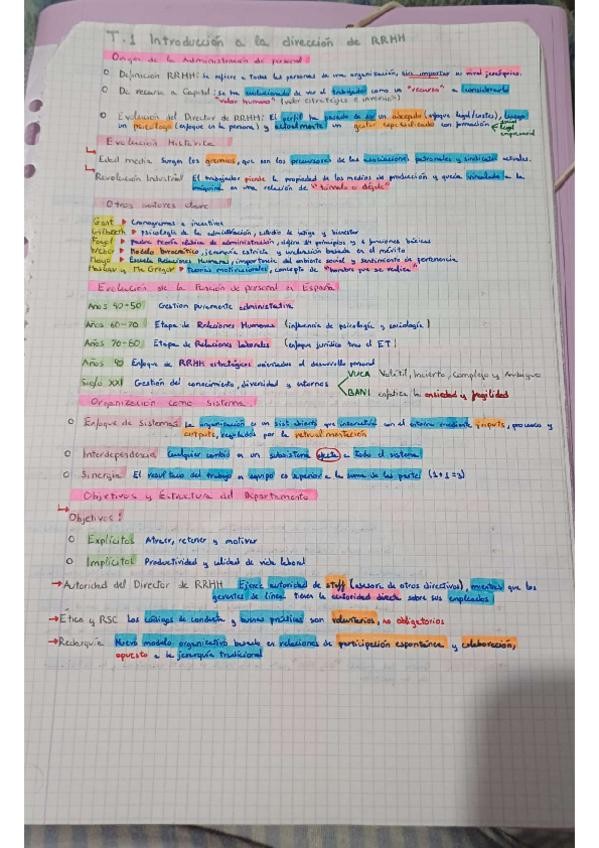 T.1 Introducción a la dirección de RRHH
Origen de la Administración de personal:
Definición RRHH: Se refiere a todas las personas de una organización, sin importar su nivel jerárquico.
De recurso a Capital: se ha evolucionado de ver el trabajador como un "recurso" a considerarlo
"valor humano" (valor estratégico e inversión)
Evolución del Director de RRHH: El perfil ha pasado de ser un abogado (enfoque legal/costes), luego
un psicólogo (enfoque en la persona) y actualmente un gestor especializado con formación
legal
empresarial
Evolución Histórica
Edad media Surgen los gremios, que son los precursores de las asociaciones patronales y sindicales actuales.
Revolución Industrial El trabajador pierde la propiedad de los medios de producción y queda vinculado a la
máquina en una relación de "tómalo o déjalo"
Otros autores clave
Gantt Cronogramas e incentivos
Gilbreth psicología de la administración, estudio de fatiga y bienestar
Fayol padre teoría clásica de administración, define 14 principios y 6 funciones básicas
Weber Modelo burocrático, jerarquía estricta y evaluación basada en el mérito
Mayo Escuela Relaciones Humanas, importancia del ambiente social y sentimiento de pertenencia
Maslow y Mc Gregor Teorías motivacionales, concepto de "hombre que se realiza"
Evolución de la Función de personal en España
Años 40-50 Gestion puramente administrativa
Años 60-70 Etapa de Relaciones Humanas (influencia de psicología y sociología)
Años 70-80 Etapa de Relaciones laborales (enfoque jurídico tras el ET)
Años 90 Enfoque de RRHH estratégicos orientados al desarrollo personal
Siglo XXI Gestión del conocimiento, diversidad y entornos
VUCA Volátil, Incierto, Complejo y Ambiguo
BANI enfatiza la ansiedad y fragilidad
Organización como Sistema
Enfoque de Sistemas La organización es un sist. abierto que interactúa con el entorno mediante inputs, procesos y
outputs, regulados por la retroalimentación
Interdependencia Cualquier cambio en un subsistema afecta a todo el sistema
Sinergia El resultado del trabajo en equipo es superior a la suma de las partes (1+1=3)
Objetivos y Estructura del Departamento
Objetivos:
Explícitos Atraer, retener y motivar
Implícitos Productividad y calidad de vida laboral
Autoridad del Director de RRHH Ejerce autoridad de staff (asesor de otros directivos), mientras que los
gerentes de línea tienen la autoridad directa sobre sus empleados
Ética y RSC Los códigos de conducta y buenas prácticas son voluntarios, no obligatorios
Redarquía Nuevo modelo organizativo basado en relaciones de participación espontánea y colaboración,
opuesto a la jerarquía tradicional